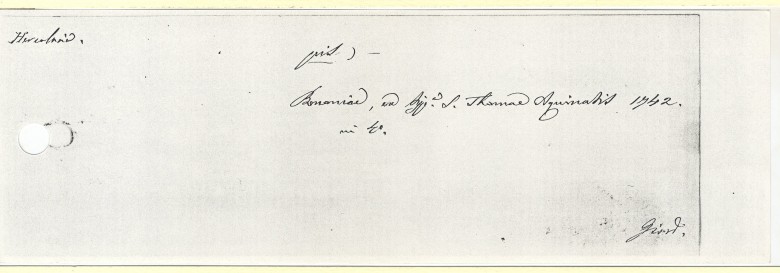 Herculani.
pit) —
Bononiae, ex Typ. S. Thomae Aquinatis 1742.
in 4°.